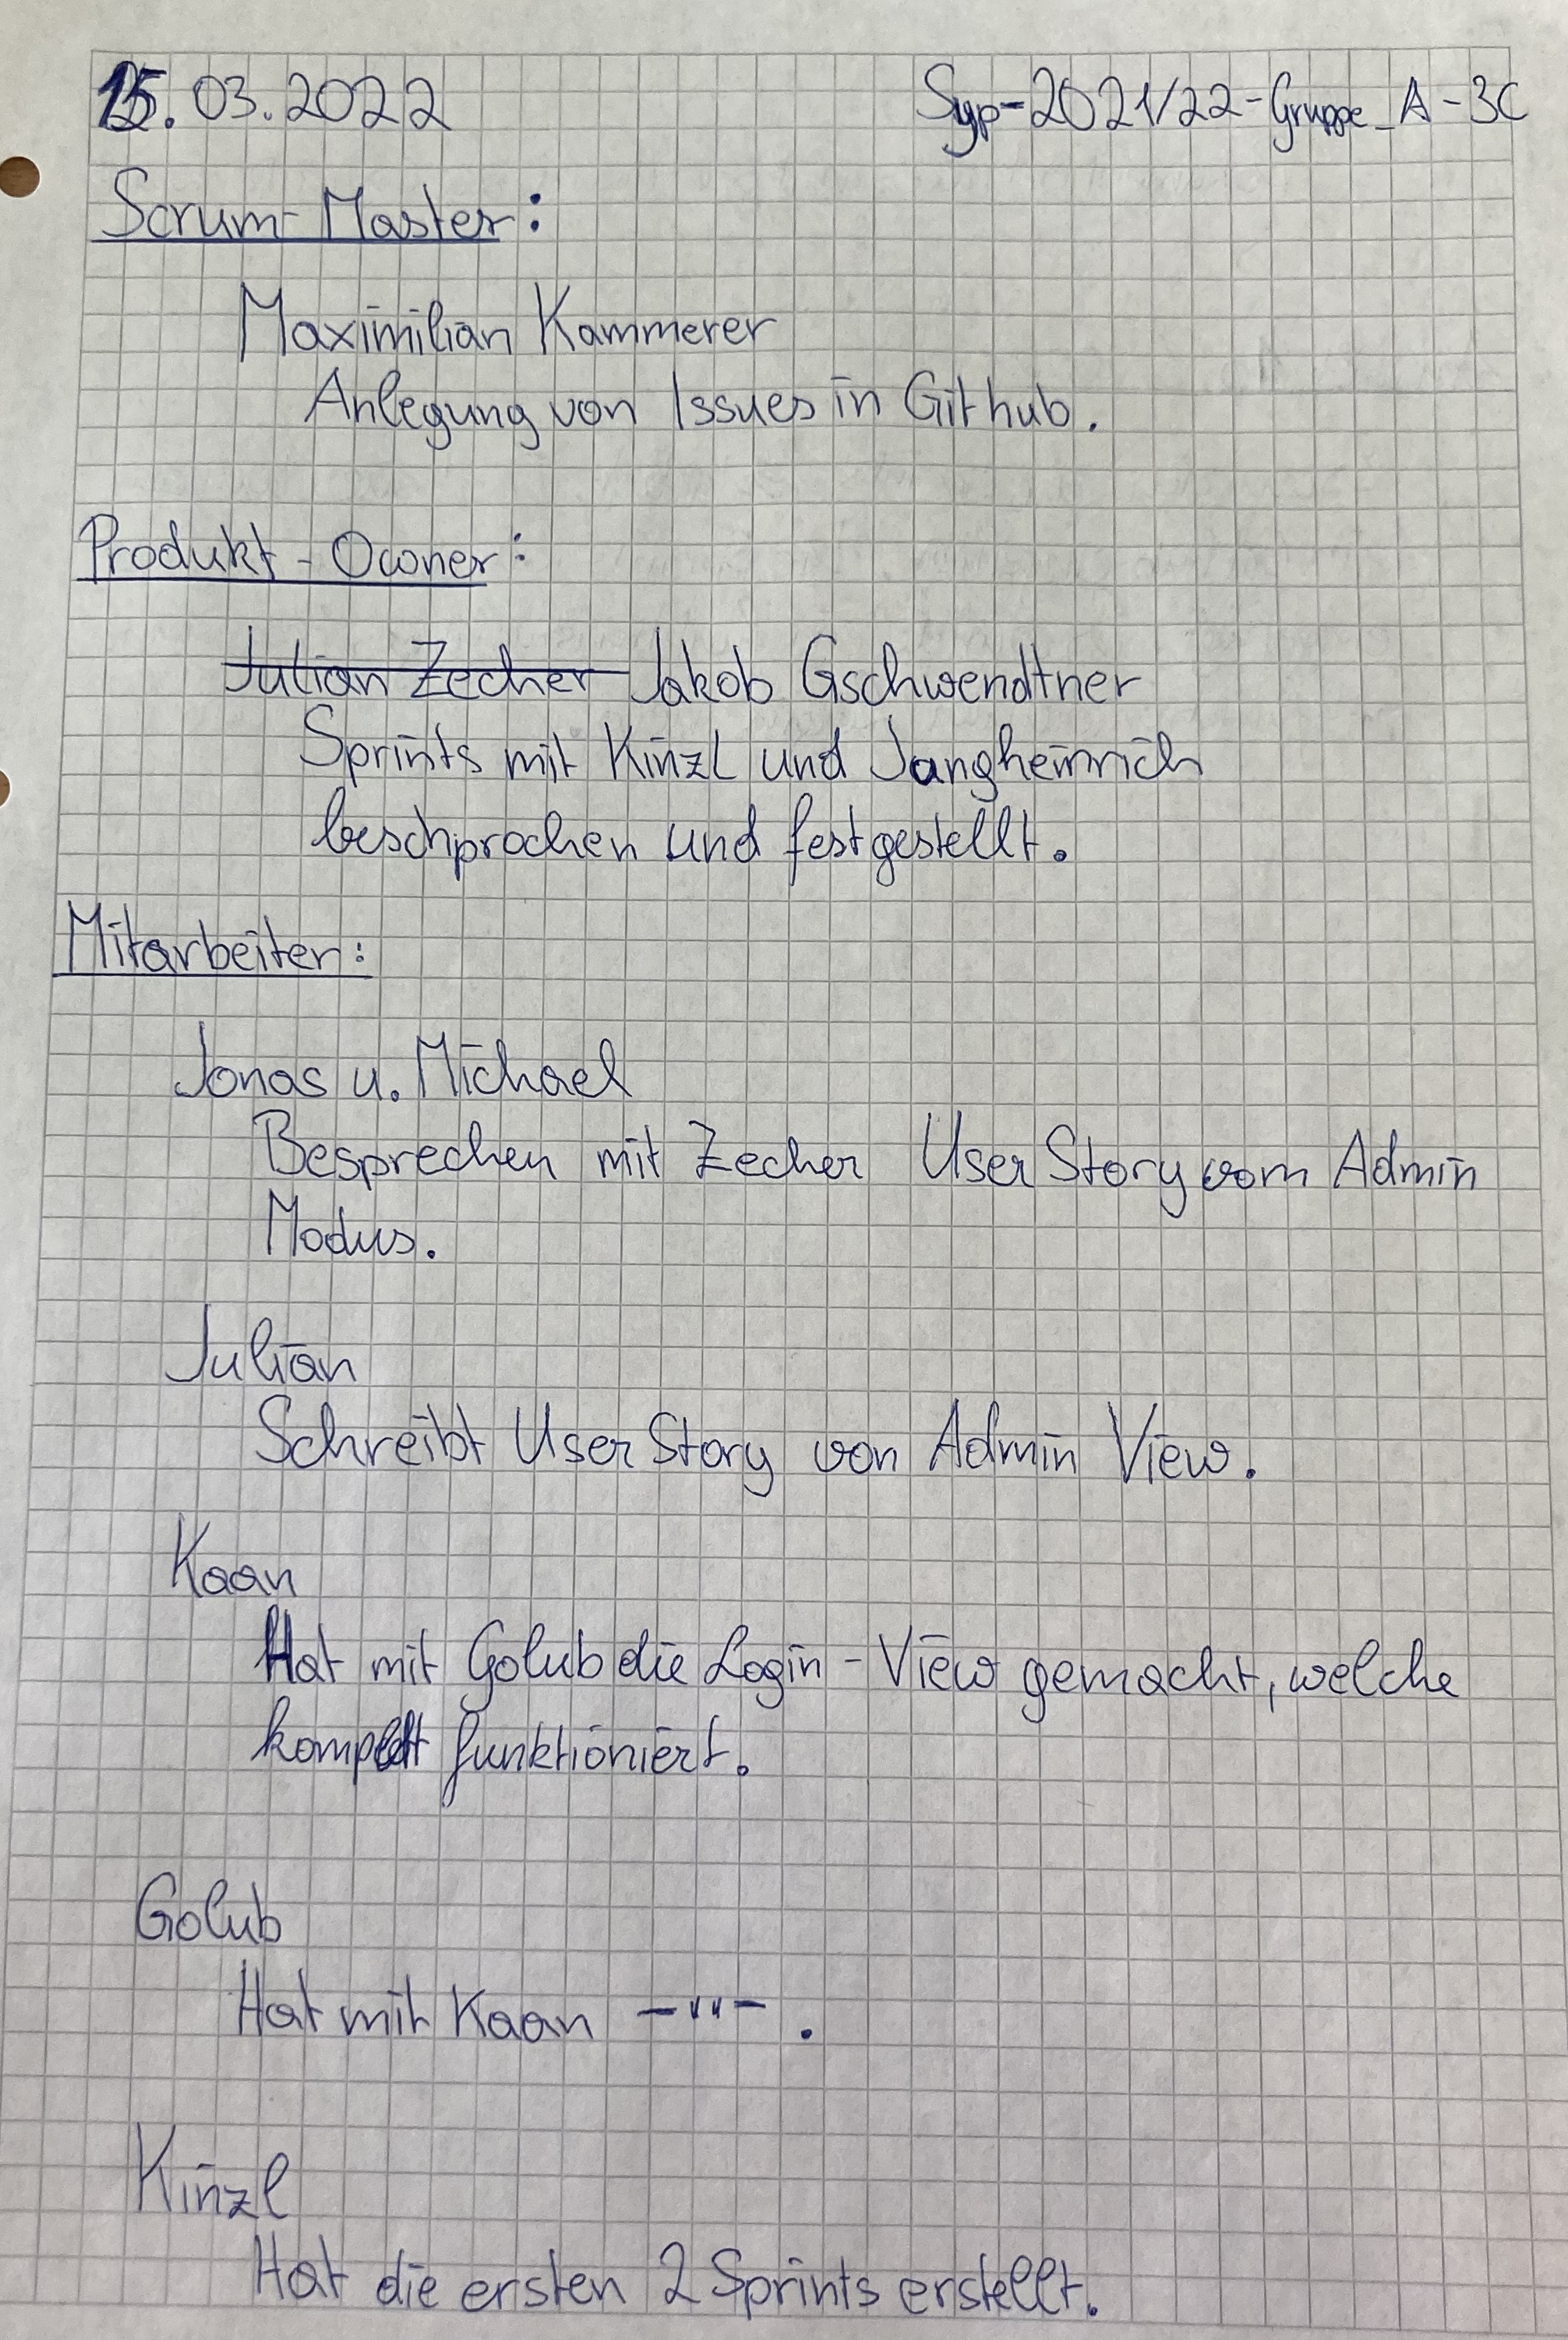 15.03.2022 Syp-2021/22-Gruppe_A-3C
Scrum-Master:
Maximilian Kammerer
Anlegung von Issues in Github.
Produkt-Owner:
Julian Zecher Jakob Gschwendtner
Sprints mit Kinzl und Jangheinrich
beschprochen und festgestellt.
Mitarbeiter:
Jonas u. Michael
Besprechen mit Zecher User Story vom Admin
Modus.
Julian
Schreibt User Story von Admin View.
Kaan
Hat mit Golub die Login-View gemacht, welche
funktioniert.
Golub
Hat mit Kaan -"-.
Kinzl
Hat die ersten 2 Sprints erstellt.